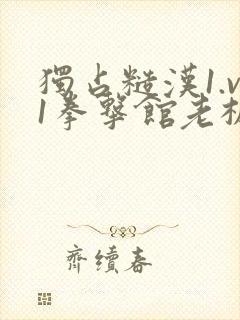 獨占糙漢1.v
1拳擊館老板
齊續春